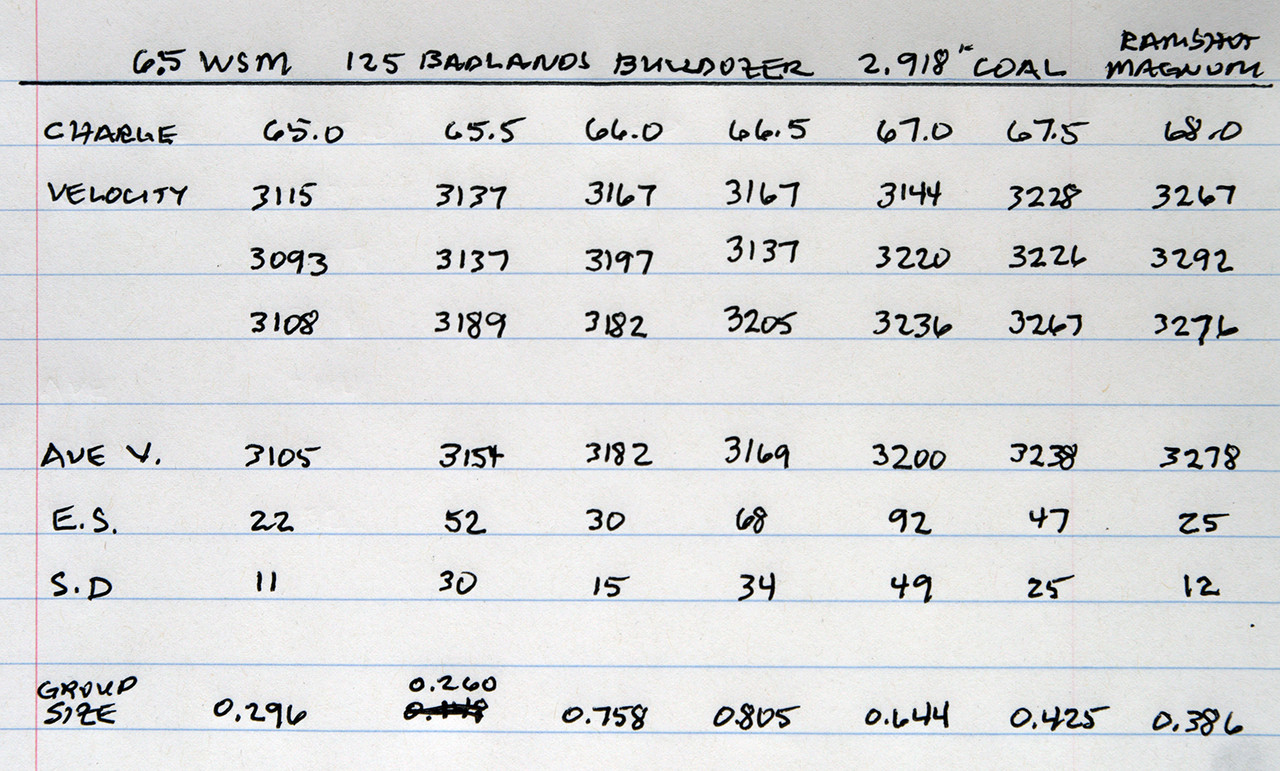 6.5 WSM 125 BADLANDS BULLDOZER 2.918" COAL RAMSHOT MAGNUM
CHARGE 65.0 65.5 66.0 66.5 67.0 67.5 68.0
VELOCITY 3115 3137 3167 3167 3144 3228 3267
3093 3137 3197 3137 3220 3226 3292
3108 3189 3182 3205 3236 3267 3276
AVE V. 3105 3154 3182 3169 3200 3238 3278
E.S. 22 52 30 68 92 47 25
S.D 11 30 15 34 49 25 12
GROUP SIZE 0.296 0.260 0.758 0.805 0.644 0.425 0.386